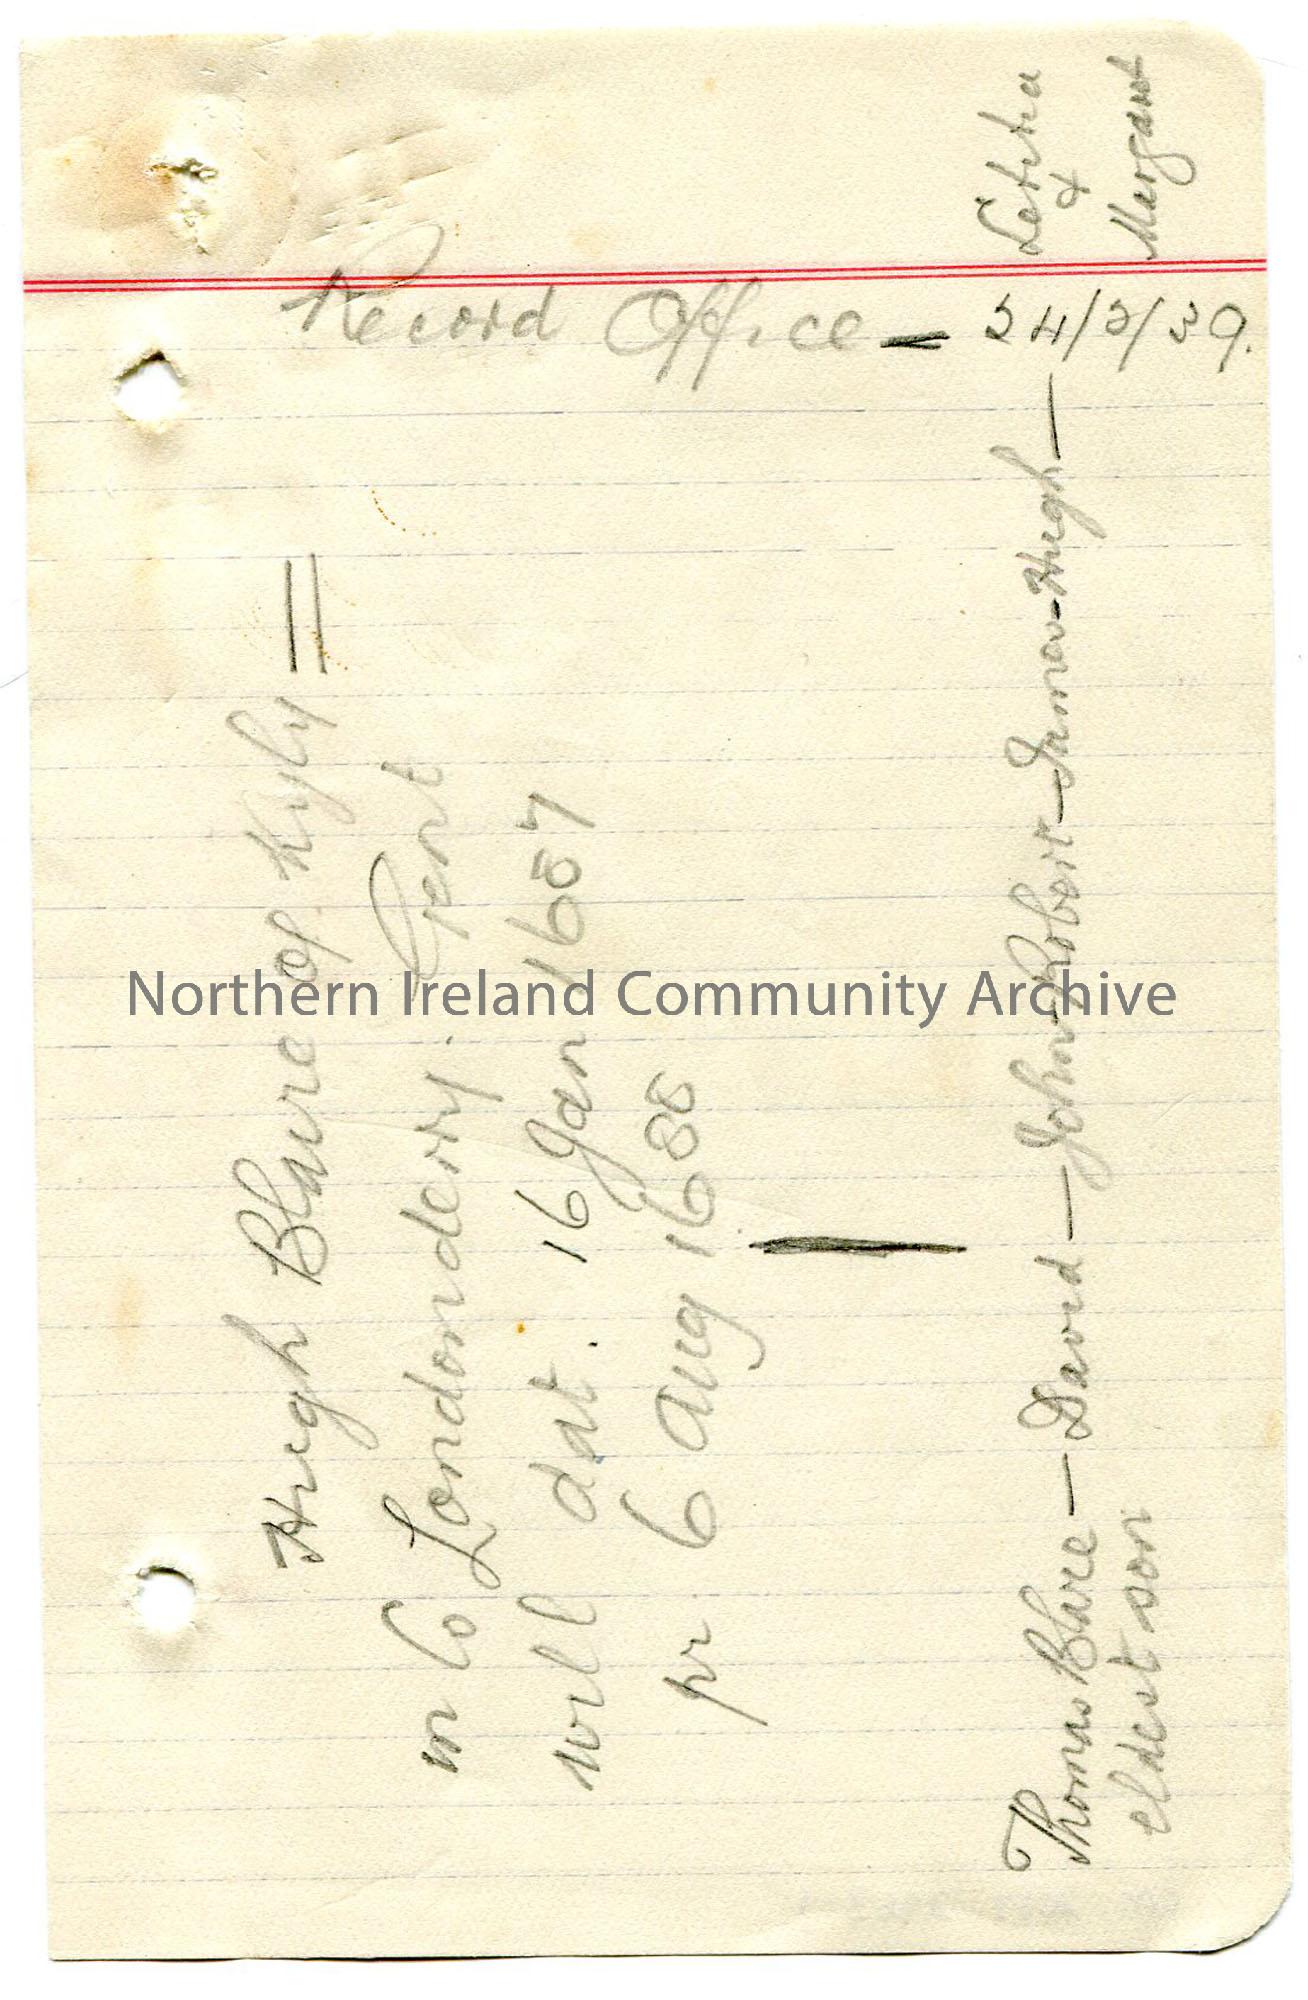 Record Office - 24/3/39.
Hugh Blaire of Kyly =
in Co Londonderry. Gent
will dat. 16 Jan 1687
pr. 6 Aug 1688
Thomas Blare - David - John - Robert - James - Hugh -
eldest son
Letitia
&
Margaret
Northern Ireland Community Archive